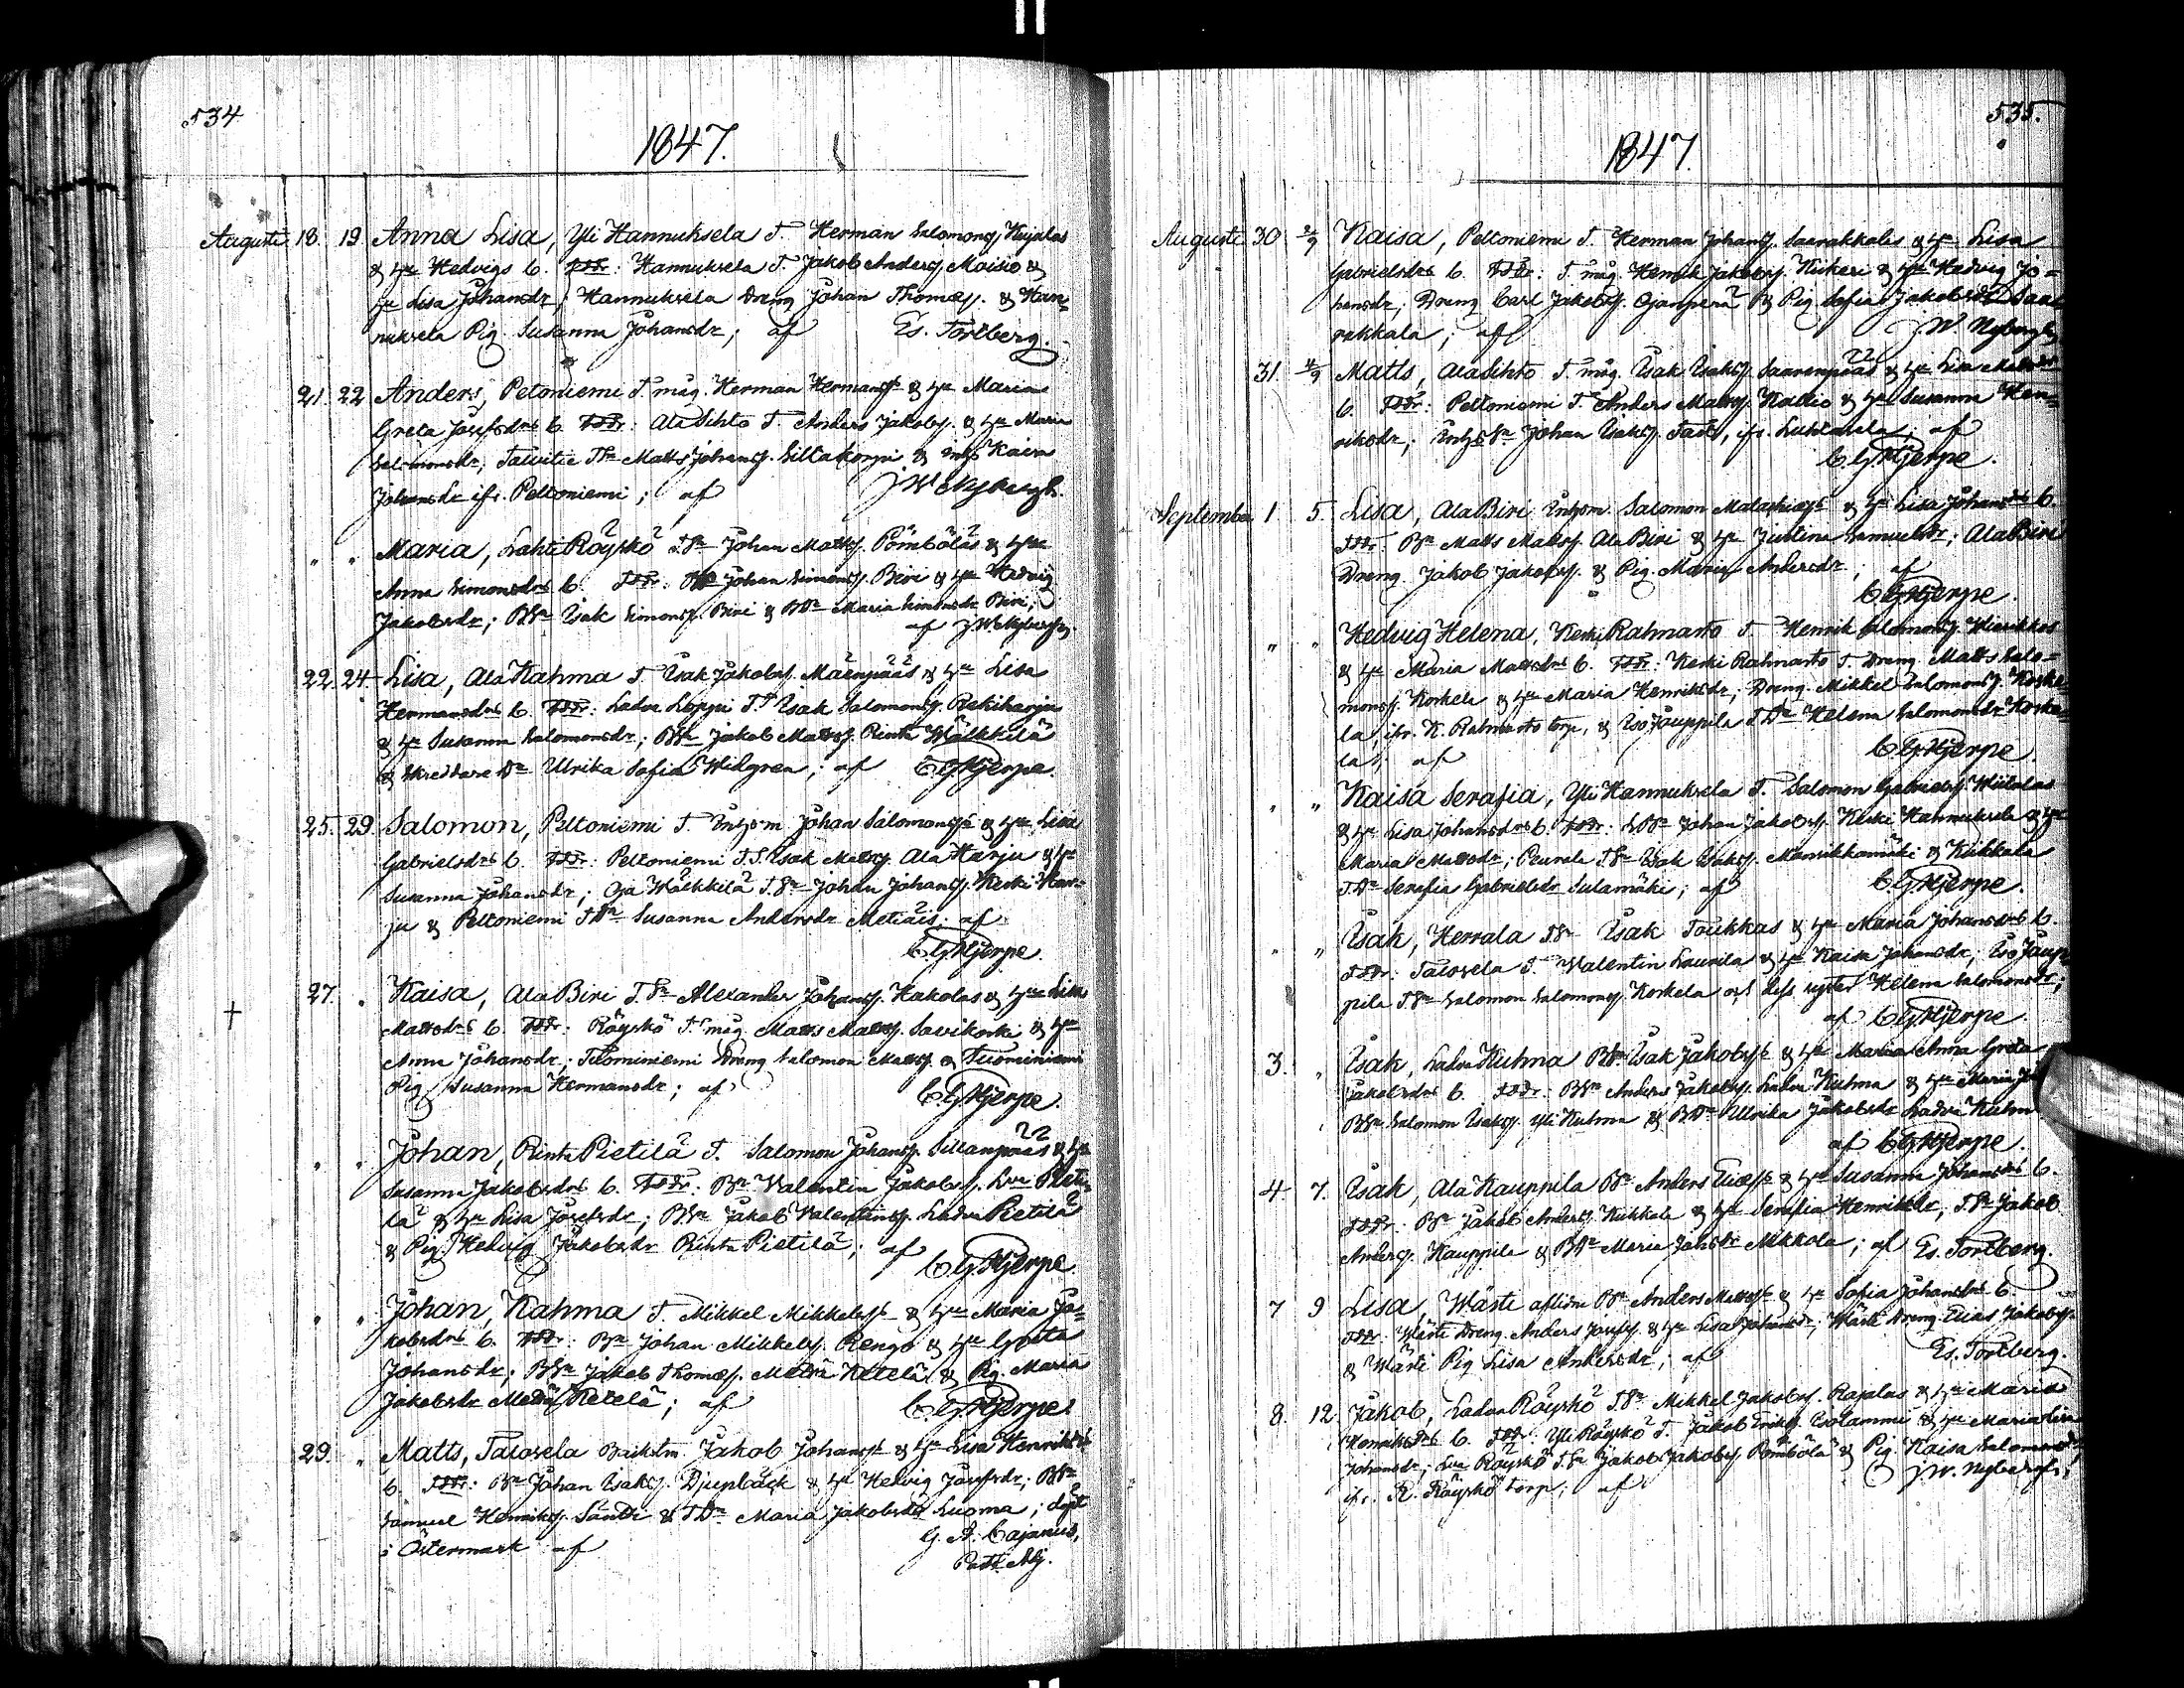 534
1847.
Augusti 18. 19 Anna Lisa, Yli Hannuksela T. Herman Salomonss Kujalas
& H:u Hedvigs b. Fddr: Hannuksela T. Jakob Anderss Maisio &
H:u Lisa Johansdr; Hannuksela Dreng Johan Thomass. & Han=
nuksela Pig. Susanna Johansdr; af Es. Forlberg.
21. 22 Anders, Petoniemi T. måg. Herman Hermanss & H:u Maria
Greta Josefsdrs b. Fddr: Ala Sihto T. Anders Jakobss. & H:u Maria
Salomonsdr; Talvitie T.S:n Matts Johanss. Siltakorpi & Kaisa
Johansdr ifr. Peltoniemi; af J W Nybergh.
" " Maria, Lahti Röyskö T.S:n Johan Mattss. Pömböläs & H:u
Anna Simonsdrs b. Fddr: Johan Simonss. Biri & H:u Hedvig
Jakobsdr; BS:n Isak Simonss. Biri & BD:r Maria Simonsdr Biri;
af J W Nybergh
22. 24. Lisa, Ala Kahma T. Isak Jakobss. Mäenpääs & H:u Lisa
Hermansdrs b. Fddr: Ladva Leppi T. Isak Salomonss. Rekiharju
& H:u Susanna Salomonsdr; BS:n Jakob Mattss. Rinta Wälkkilä
& Skreddare D:r Ulrika Sofia Widgren; af C G Hjerpe.
25. 29 Salomon, Peltoniemi T. Inhs:m Johan Salomonss & H:u Lisa
Gabrielsdrs b. Fddr: Peltoniemi T.S. Isak Mattss. Ala Harju & H:u
Susanna Johansdr; Oja Wälkkilä T.S:n Johan Johanss. Keski Har=
ju & Peltoniemi T.D:r Susanna Andersdr Metiäis; af
C. G Hjerpe.
27. " Kaisa, Ala Biri T.S:n Alexander Johanss. Kakolas & H:u Lisa
Mattsdrs b. Fddr: Röyskö T. måg Matts Mattss. Savikoski & H:u
Anna Johansdr; Tuominiemi Dreng Salomon Mattss. & Tuominiemi
Pig. Susanna Hermansdr; af C. G Hjerpe.
" " Johan, Rinta Pietilä T. Salomon Johanss. Sillanpääs & H:u
Susanna Jakobsdrs b. Fddr: B:n Valentin Jakobss. L:va Pieti=
lä & H:u Lisa Josefsdr; BS:n Jakob Valentinss. Ladva Pietilä
& Pig. Hedvig Jakobsdr Rinta Pietilä; af
C G Hjerpe
" " Johan, Kahma T. Mikkel Mikkelss & H:u Maria Ja=
kobsdrs b. Fddr: B:n Johan Mikkelss. Rengo & H:u Greta
Johansdr; BS:n Jakob Thomass. Metsä Ketelä & Pig. Maria
Jakobsdr Metsä Ketelä; af C. G Hjerpe.
29. " Matts, Talosela Jakob Johanss & H:u Lisa Henriksdrs
b. Fddr: B:n Johan Isakss. Djupbäck & H:u Hedvig Josefsdr; BS:n
Samuel Henrikss. Sandi & T.D:r Maria Jakobsdr Luoma; döpt
i Östermark af G. A. Cajanus,
Past. Adj.
535.
1847.
Augusti 30 2/9 Kaisa, Peltoniemi T. Herman Johanss. Saarakkalas & H:u Lisa
Gabrielsdrs b. Fddr: T. måg. Henrik Jakobss. Kiikeri & H:u Hedvig Jo=
hansdr; Dreng Carl Jakobss. Ojanperä & Pig. Sofia Jakobsdr Saa=
rakkala; af J W. Nybergh
31. 4/9 Matts, Ala Sihto T. måg. Isak Isakss. Saarenpääs & H:u Lisa Mattsdrs
b. Fddr: Peltoniemi T. Anders Mattss. Kallio & H:u Susanna Hen=
riksdr; Inhs S:n Johan Isakss. Fast, ifr. Luhtasela; af
C. G Hjerpe.
September 1. 5. Lisa, Ala Biri Inhs:m Salomon Malachiass & H:u Lisa Johansdrs b.
Fddr: B:n Matts Mattss. Ala Biri & H:u Justina Samuelsdr; Ala Biri
Dreng Jakob Jakobss. & Pig. Maria Andersdr; af
C G Hjerpe.
" " Hedvig Helena, Keski Rahnasto T. Henrik Salomonss. Wierikkos
& H:u Maria Mattsdrs b. Fddr: Keski Rahnasto T. Dreng Matts Salo=
monss. Korkela & H:u Maria Henriksdr; Dreng Mikkel Salomonss. Korke=
la, ifr. K. Rahnasto torp, & Iso Jauppila T.D:r Helena Salomonsdr Korke=
la; af C G Hjerpe.
" " Kaisa Serafia, Yli Hannuksela T. Salomon Gabrielss. Wiitalas
& H:u Lisa Johansdrs b. Fddr: Johan Jakobss. Keski Hannuksela & H:u
Maria Mattsdr; Peurala T.S:n Isak Isakss. Mansikkamäki & Kiikkala
T.D:r Serafia Gabrielsdr Sulamäki; af C G Hjerpe.
" " Isak, Herrala T.S:n Isak Toukkas & H:u Maria Johansdrs b.
Fddr: Talosela T. Valentin Laurila & H:u Kaisa Johansdr; Iso Jaup=
pila T.S:n Salomon Salomonss. Korkela och dess syster Helena Salomonsdr;
af C G Hjerpe
3. " Isak, Ladva Kuhna BS:n Isak Jakobss & H:u Maria Anna Greta
Jakobsdrs b. Fddr: BS:n Anders Jakobss. Ladva Kuhna & H:u Maria
BS:n Salomon Isakss. Yli Kuhna & BD:r Ulrika Jakobsdr Ladva Kuhn
af C G Hjerpe.
4. 7. Isak, Ala Kauppila B:n Anders Eliass & H:u Susanna Johansdrs b.
Fddr: B:n Jakob Anderss. Kiikkala & H:u Serafia Henriksdr; T.S:n Jakob
Anderss. Kauppila & BD:r Maria Johsdr Mikkola; af Es. Forlberg.
7 9 Lisa, Wästi aflidne B:n Anders Mattss & H:u Sofia Johansdrs b.
Fddr: Wästi Dreng Anders Josefss. & H:u Lisa Johansdr; Wästi Dreng Elias Jakobss.
& Wästi Pig Lisa Andersdr; af Es. Forlberg.
8. 12 Jakob, Ladva Röyskö T.S:n Mikkel Jakobss. Rajalas & H:u Maria
Henriksdrs b. Fddr: Yli Röyskö T. Jakob Erikss. Isotammi & H:u Maria Lisa
Johansdr; L:va Röyskö T.S:n Jakob Jakobss. Pömbölä & Pig. Kaisa Salomonsdr
ifr. R. Röyskö torp; af J W. Nybergh.